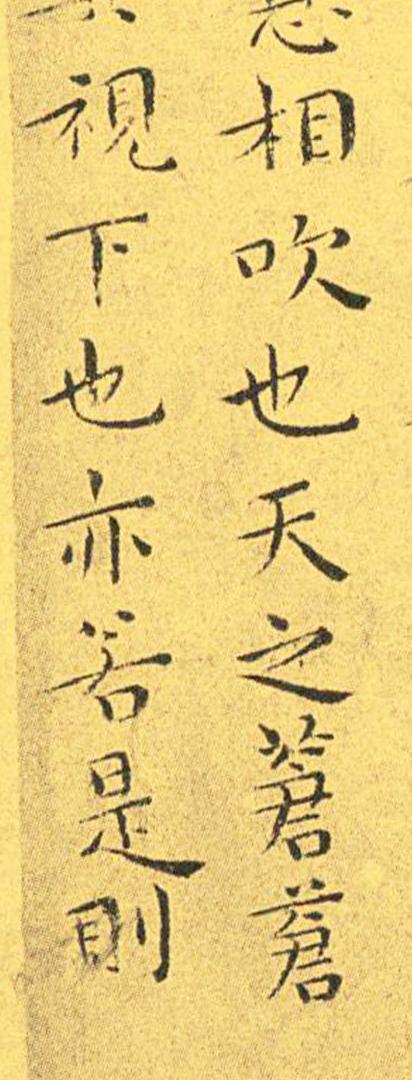 息相吹也天之蒼蒼
視下也亦若是則